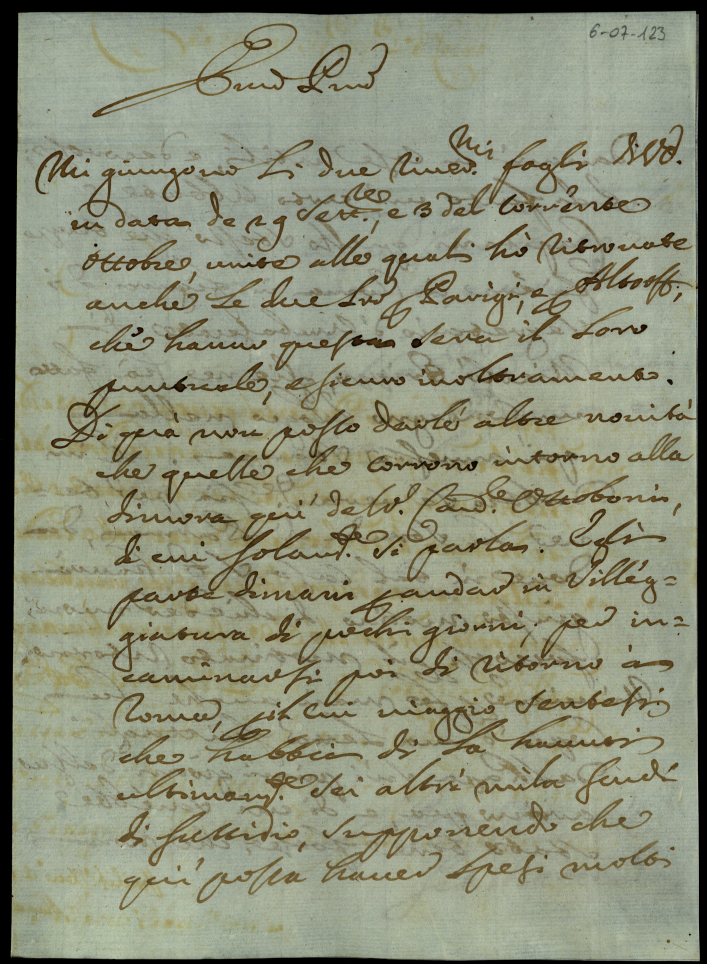 6-07-123
Mi giungono li due river.mi fogli di V.S.
in data de 29 Sett.re, e 3 del corrente
Ottobre, unite alle quali hò ritrovate
anche le due p Parigi, e p Altorff,
che hanno questa sera il loro
puntuale, e sicuro inoltramento.
Di quà non posso darle altre novità
che quelle che corrono intorno alla
dimora quì del S.r Card.le Ottoboni,
di cui solam.te si parla. Egli
parte dimani p andar in Villeg=
giatura di pochi giorni, per in=
caminarsi poi di ritorno à
Roma, p il cui viaggio sentesi
che habbia di là havuti
ultimam.te sei altri mila scudi
di sussidio, supponendo che
quì possa haver spesi molti